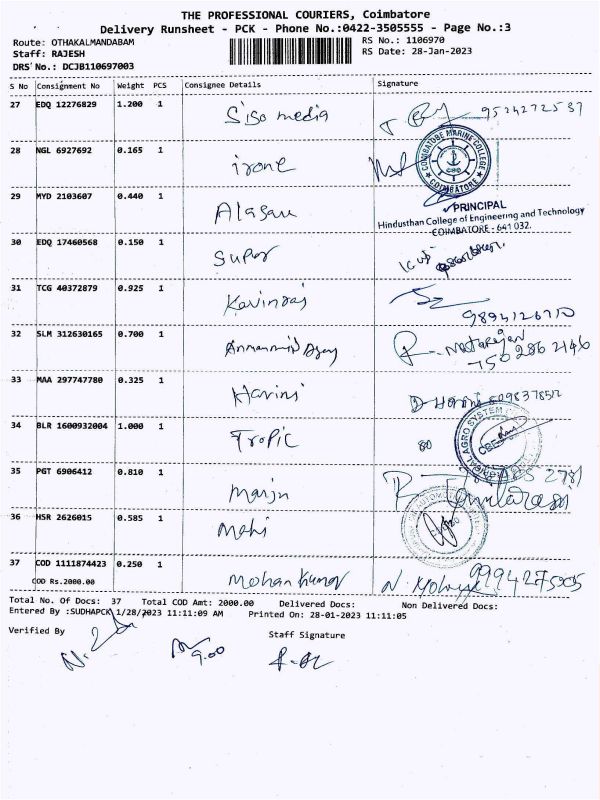 THE PROFESSIONAL COURIERS, Coimbatore
Delivery Runsheet - PCK - Phone No.:0422-3505555 - Page No.:3
Route: OTHAKALMANDABAM RS No.: 1106970
Staff: RAJESH RS Date: 28-Jan-2023
DRS No.: DCJB110697003
S No Consignment No Weight PCS Consignee Details Signature
27 EDQ 12276829 1.200 1 Siso media
28 NGL 6927692 0.165 1 irone
COIMBATORE MARINE COLLEGE
COIMBATORE
29 MYD 2103607 0.440 1 Alasau
PRINCIPAL
Hindusthan College of Engineering and Technology
COIMBATORE - 641 032.
30 EDQ 17460568 0.150 1 Super
31 TCG 40372879 0.925 1 Kavinraj
32 SLM 312630165 0.700 1
750 286 2146
33 MAA 297747780 0.325 1 Harini
34 BLR 1600932004 1.000 1 Tropic
AGRO SYSTEM
35 PGT 6906412 0.810 1 Marju
36 HSR 2626015 0.585 1 Mahi
37 COD 1111874423 0.250 1 Mohan Kumar 9994275005
COD Rs.2000.00
Total No. Of Docs: 37 Total COD Amt: 2000.00 Delivered Docs: Non Delivered Docs:
Entered By :SUDHAPCK 1/28/2023 11:11:09 AM Printed On: 28-01-2023 11:11:05
Verified By Staff Signature
9.00